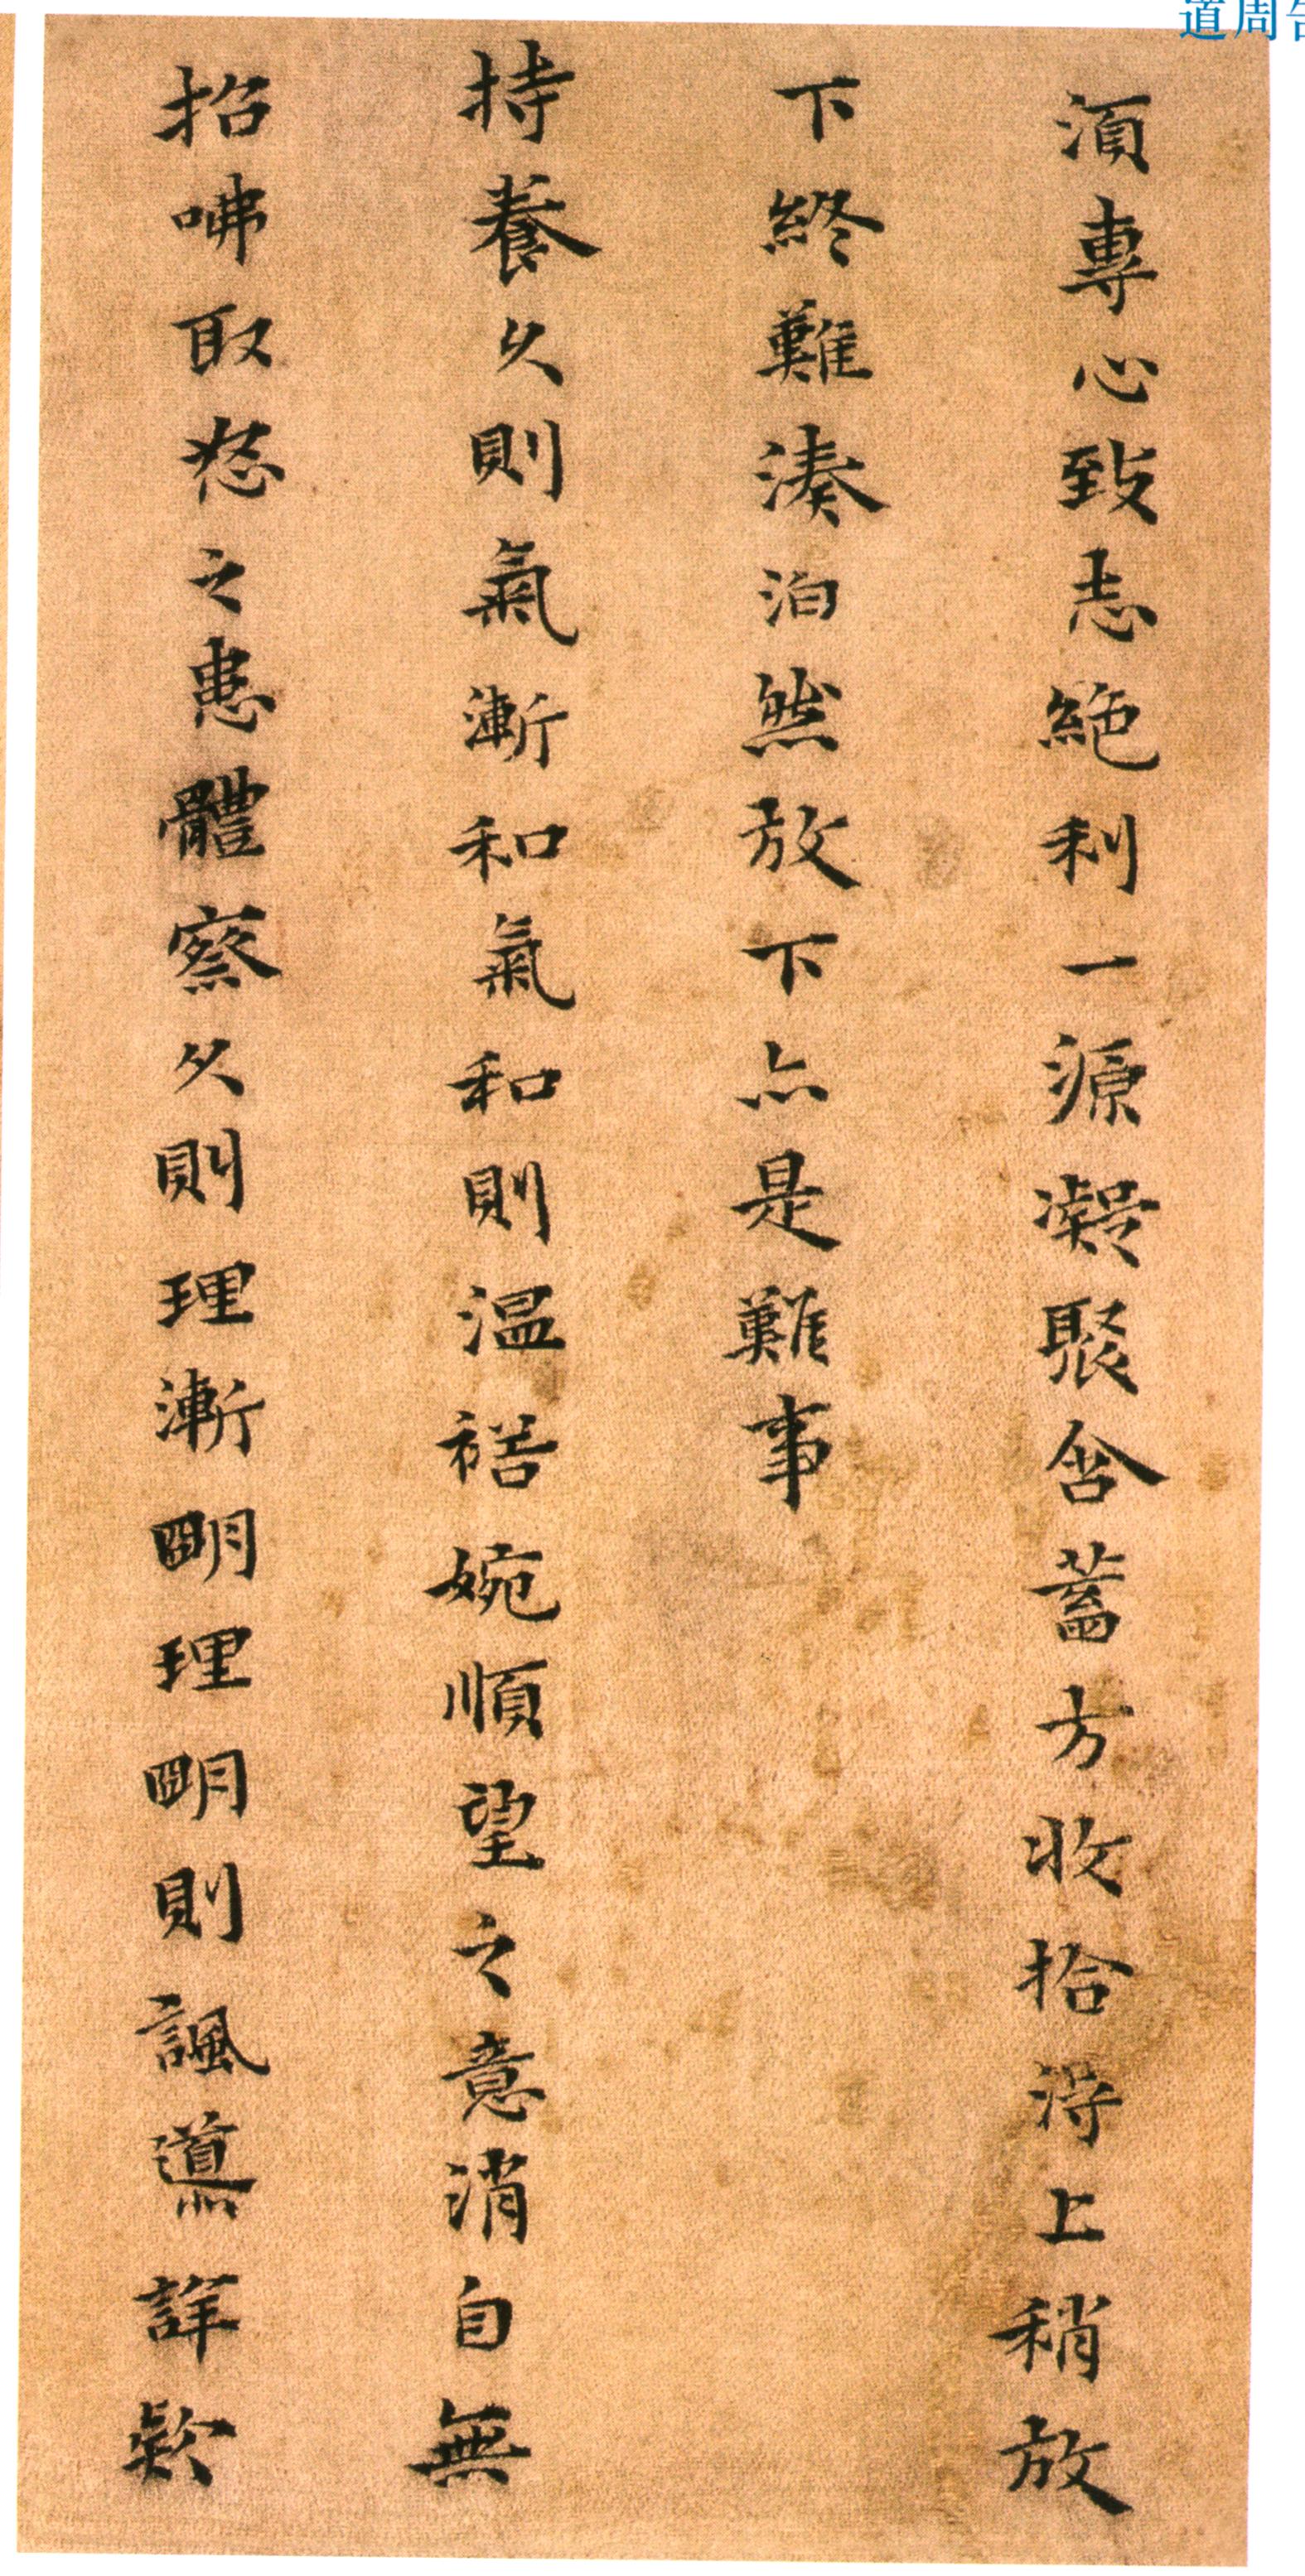 道周告
須專心致志絶利一源凝聚含蓄方收拾得上稍放
下終難湊泊然放下亦是難事
持養久則氣漸和氣和則温裕婉順望之意消自無
招咈取怒之患體察久則理漸明理明則諷導詳款